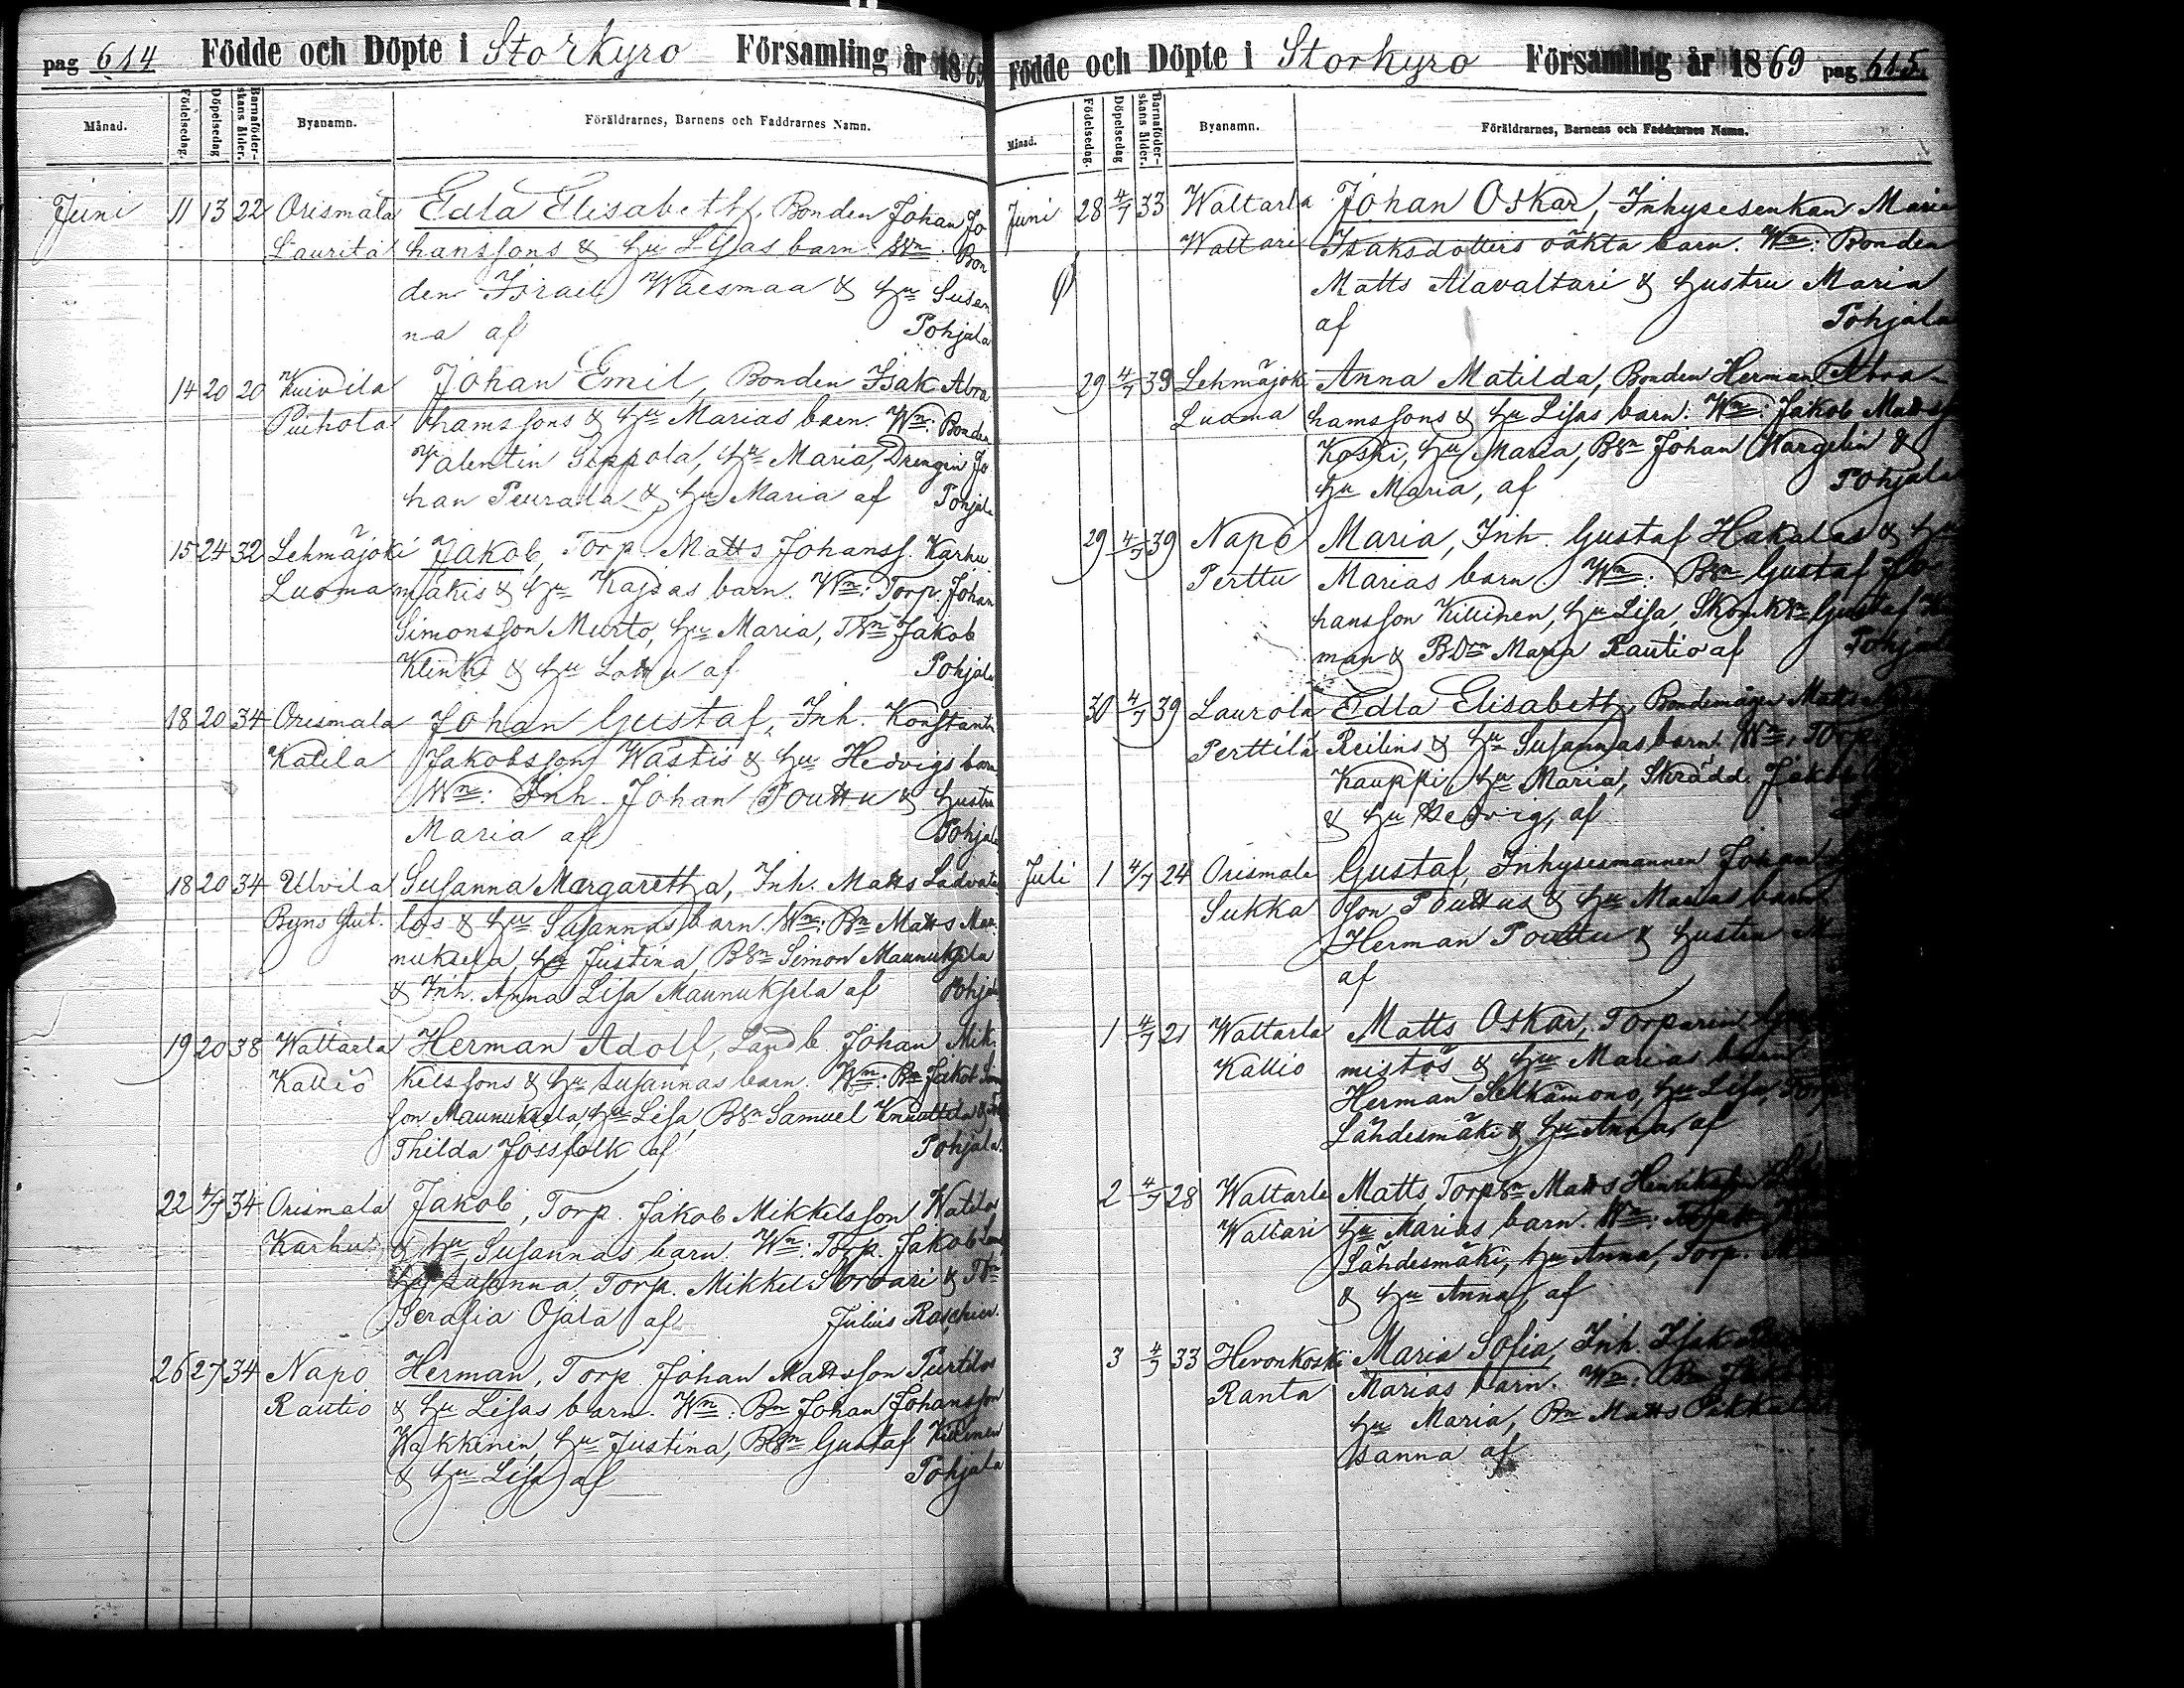 pag 614 Födde och Döpte i Storkyro Församling år 1869
Månad. Födelsedag. Döpelsedag Barnaföderskans ålder. Byanamn. Föräldrarnes, Barnens och Faddrarnes Namn.
Juni 11 13 22 Orismala Edla Elisabeth, Bonden Johan Jo
Laurila hanssons & hu Lisas barn. Wn: Bon
den Israel Waismaa & hu Susan
na af Pohjala
14 20 20 Kuivila Johan Emil, Bonden Isak Abra
Puihola hamssons & hu Marias barn. Wn: Bonden
Valentin Sippola, hu Maria, Drengen Jo
han Peurala & hu Maria af Pohjala
15 24 32 Lehmäjoki Jakob, Torp. Matts Johanss. Karhu
Luoma mäkis & hu Kajsas barn. Wn: Torp. Johan
Simonsson Murto, hu Maria, Jakob
Klinki & hu af Pohjala
18 20 34 Orismala Johan Gustaf, Inh. Konstantin
Katila Jakobsson Wästis & hu Hedvigs barn
Wn: Inh. Johan Pouttu & hustru
Maria af Pohjala
18 20 34 Ulvila Susanna Margaretha, Inh. Matts Ladvata
Byns hu Susannas barn. Wn: Bn Matts Mau
nuksela, hu Justina, Simon Maunuksela
& Inh. Anna Lisa Maunuksela af Pohjala
19 20 38 Waltarla Herman Adolf, Landb. Johan Mik
Kallio kelssons & hu Susannas barn. Wn: Bn Jakob
son Maunuksela, hu Lisa, Samuel Knuuttila &
Thilda Jossfolk af Pohjala.
22 4/7 34 Orismala Jakob, Torp. Jakob Mikkelsson Watilas
Karhu & hu Susannas barn. Wn: Torp. Jakob
Susanna, Torp. Mikkel &
Serafia Ojala af Julius Raschier.
26 27 34 Napo Herman, Torp. Johan Mattsson Purtilas
Rautio & hu Lisas barn. Wn: Bn Johan Johansson
Wakkinen, hu Justina, Gustaf Killinen
& hu Lisa af Pohjala
Födde och Döpte i Storkyro Församling år 1869 pag 615
Månad. Födelsedag. Döpelsedag Barnaföderskans ålder. Byanamn. Föräldrarnes, Barnens och Faddrarnes Namn.
Juni 28 4/7 33 Waltarla Johan Oskar, Inhysesenkan Maria
Waltari Isaksdotters oäkta barn. Wn: Bonden
Matts Alavaltari & hustru Maria
af Pohjala
29 4/7 39 Lehmäjoki Anna Matilda, Bonden Herman Abra
Luoma hamssons & hu Lisas barn. Wn: Jakob
Koski, hu Maria, Johan Wargelin &
hu Maria, af Pohjala
29 4/7 39 Napo Maria, Inh. Gustaf Hakalas & hu
Perttu Marias barn. Wn: Gustaf Jo
hansson Killinen, hu Lisa, Gustaf
man & Maria Rautio af Pohjala
30 4/7 39 Laurola Edla Elisabeth, Bondemågen Matts
Perttilä Reilins & hu Susannas barn. Wn: Torp
Kauppi, hu Maria, Skrädd. Jakob
& hu Hedvig, af
Juli 1 4/7 24 Orismala Gustaf, Inhysesmannen Johan
Sukka son Pouttus & hu Marias barn
Herman Pouttu & hustru M
af
1 4/7 21 Waltarla Matts Oskar, Torparen
Kallio mistös & hu Marias barn
Herman hu Lisa, Torp
Lähdesmäki & hu Anna, af
2 4/7 28 Waltarla Matts Matts Henriksson
Waltari hu Marias barn. Wn:
Lähdesmäki, hu Anna, Torp.
& hu Anna, af
3 4/7 33 Hevonkoski Maria Sofia, Inh. Isak
Ranta Marias barn. Wn: Bn
hu Maria, Bn Matts Pukkala
sanna af